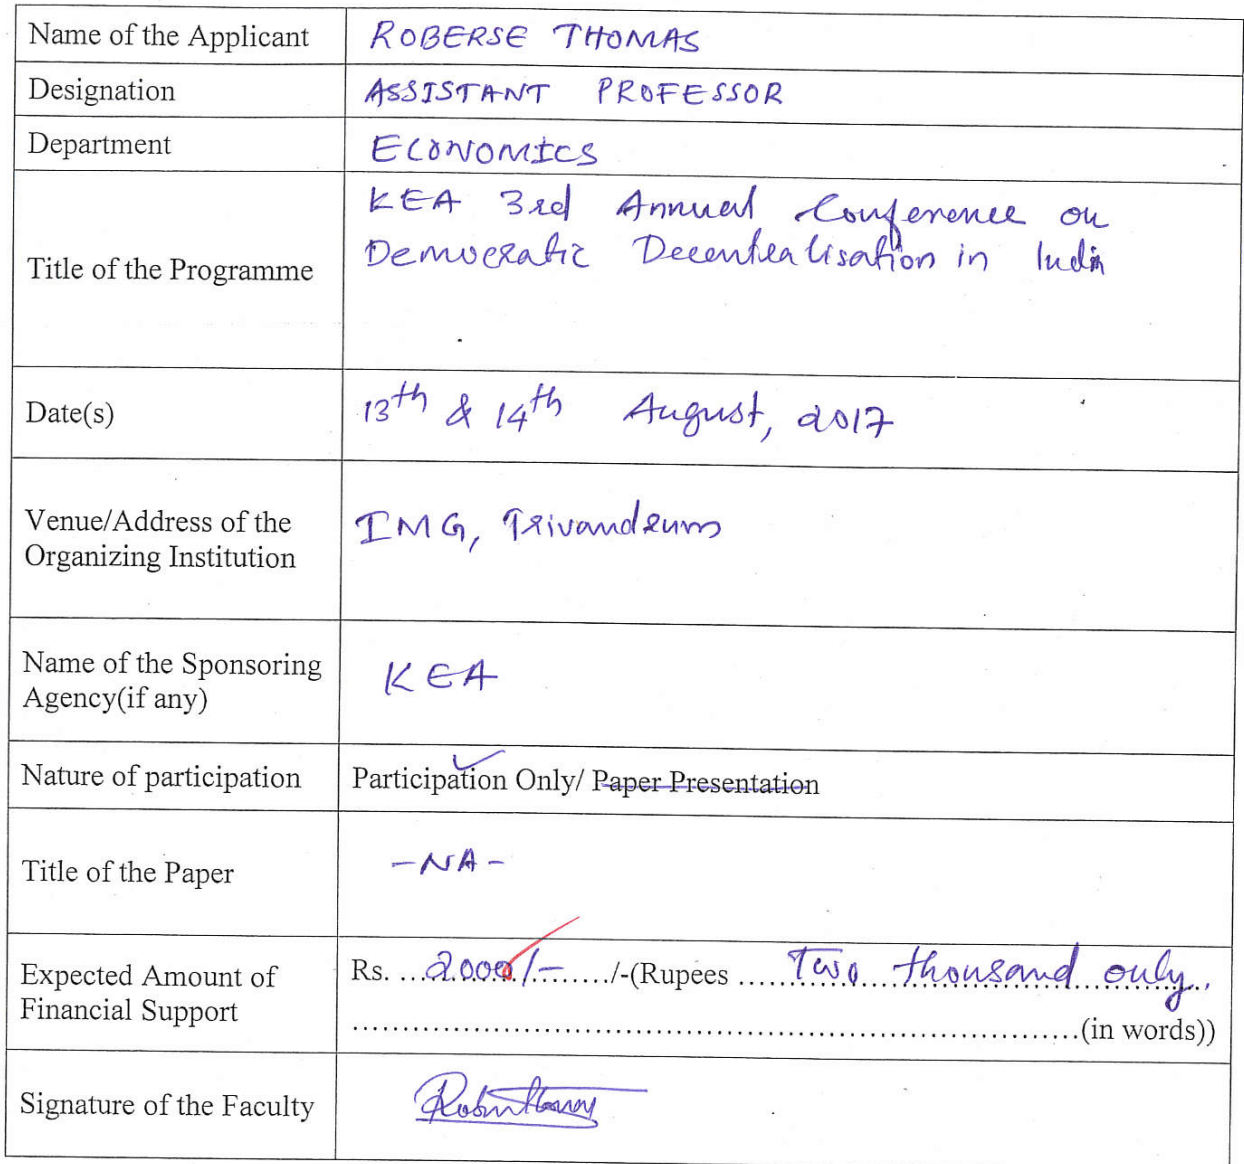 Name of the Applicant ROBERSE THOMAS
Designation ASSISTANT PROFESSOR
Department ECONOMICS
KEA 3rd Annual Conference on
Democratic Decentralisation in India
Title of the Programme
Date(s) 13th & 14th August, 2017
Venue/Address of the
Organizing Institution
IMG, Trivandrum
Name of the Sponsoring
Agency(if any)
KEA
Nature of participation Participation Only/ Paper Presentation
Title of the Paper -NA-
Expected Amount of
Financial Support
Rs. ...2000/-....../-(Rupees ...Two thousand only.
(in words))
Signature of the Faculty